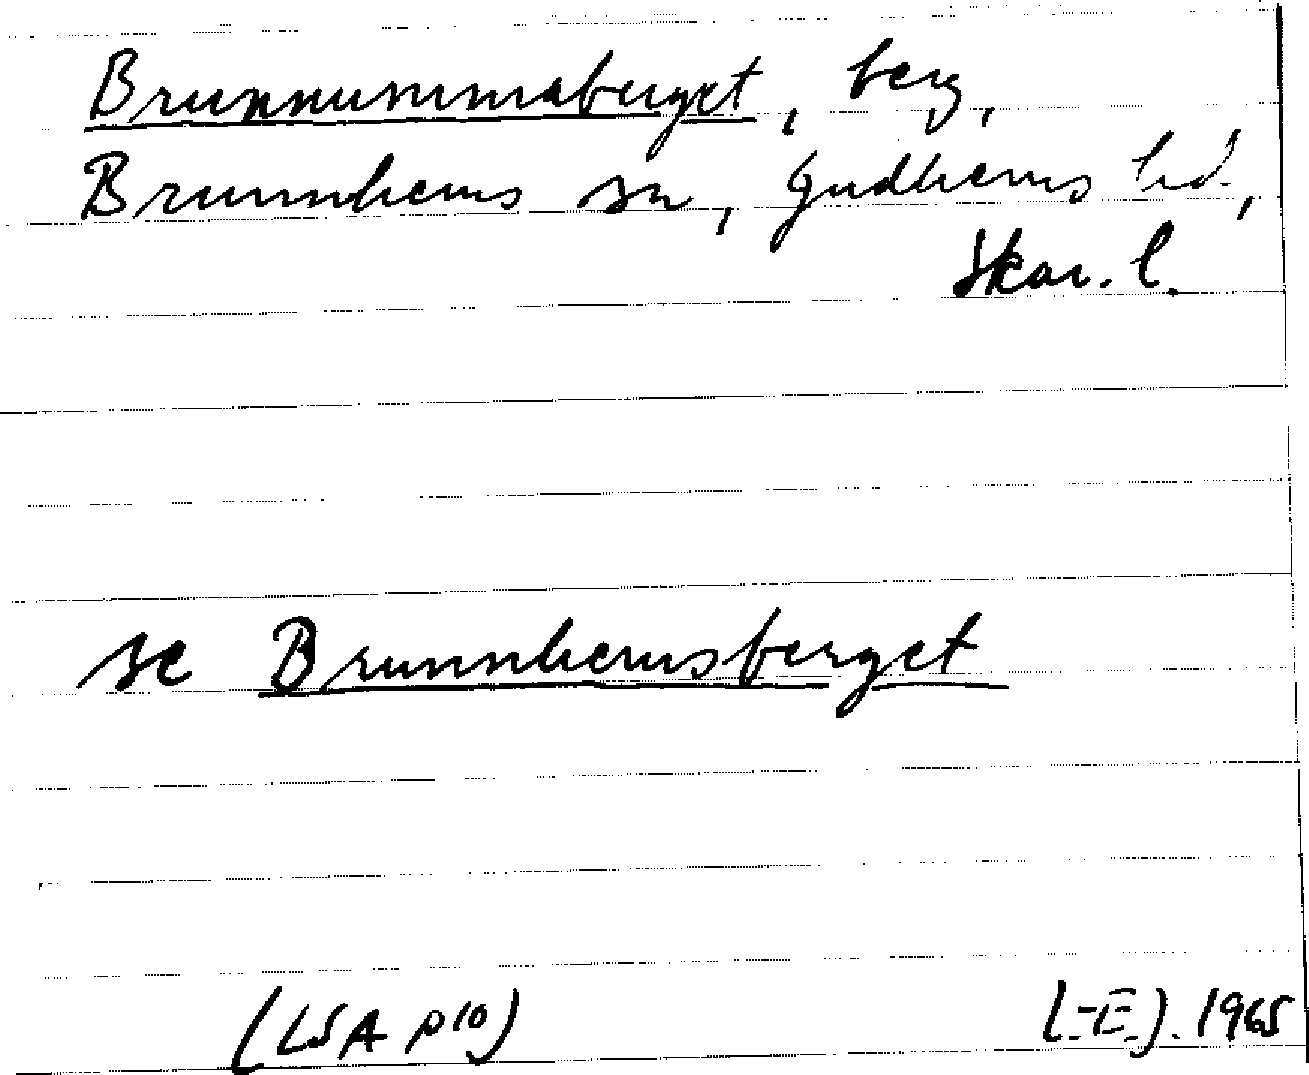 Brunnummaberget, berg,
Brunnhems sn, Gudhems hd.,
Skar. l.
se Brunnhemsberget
(LSA p10) (-E). 1965